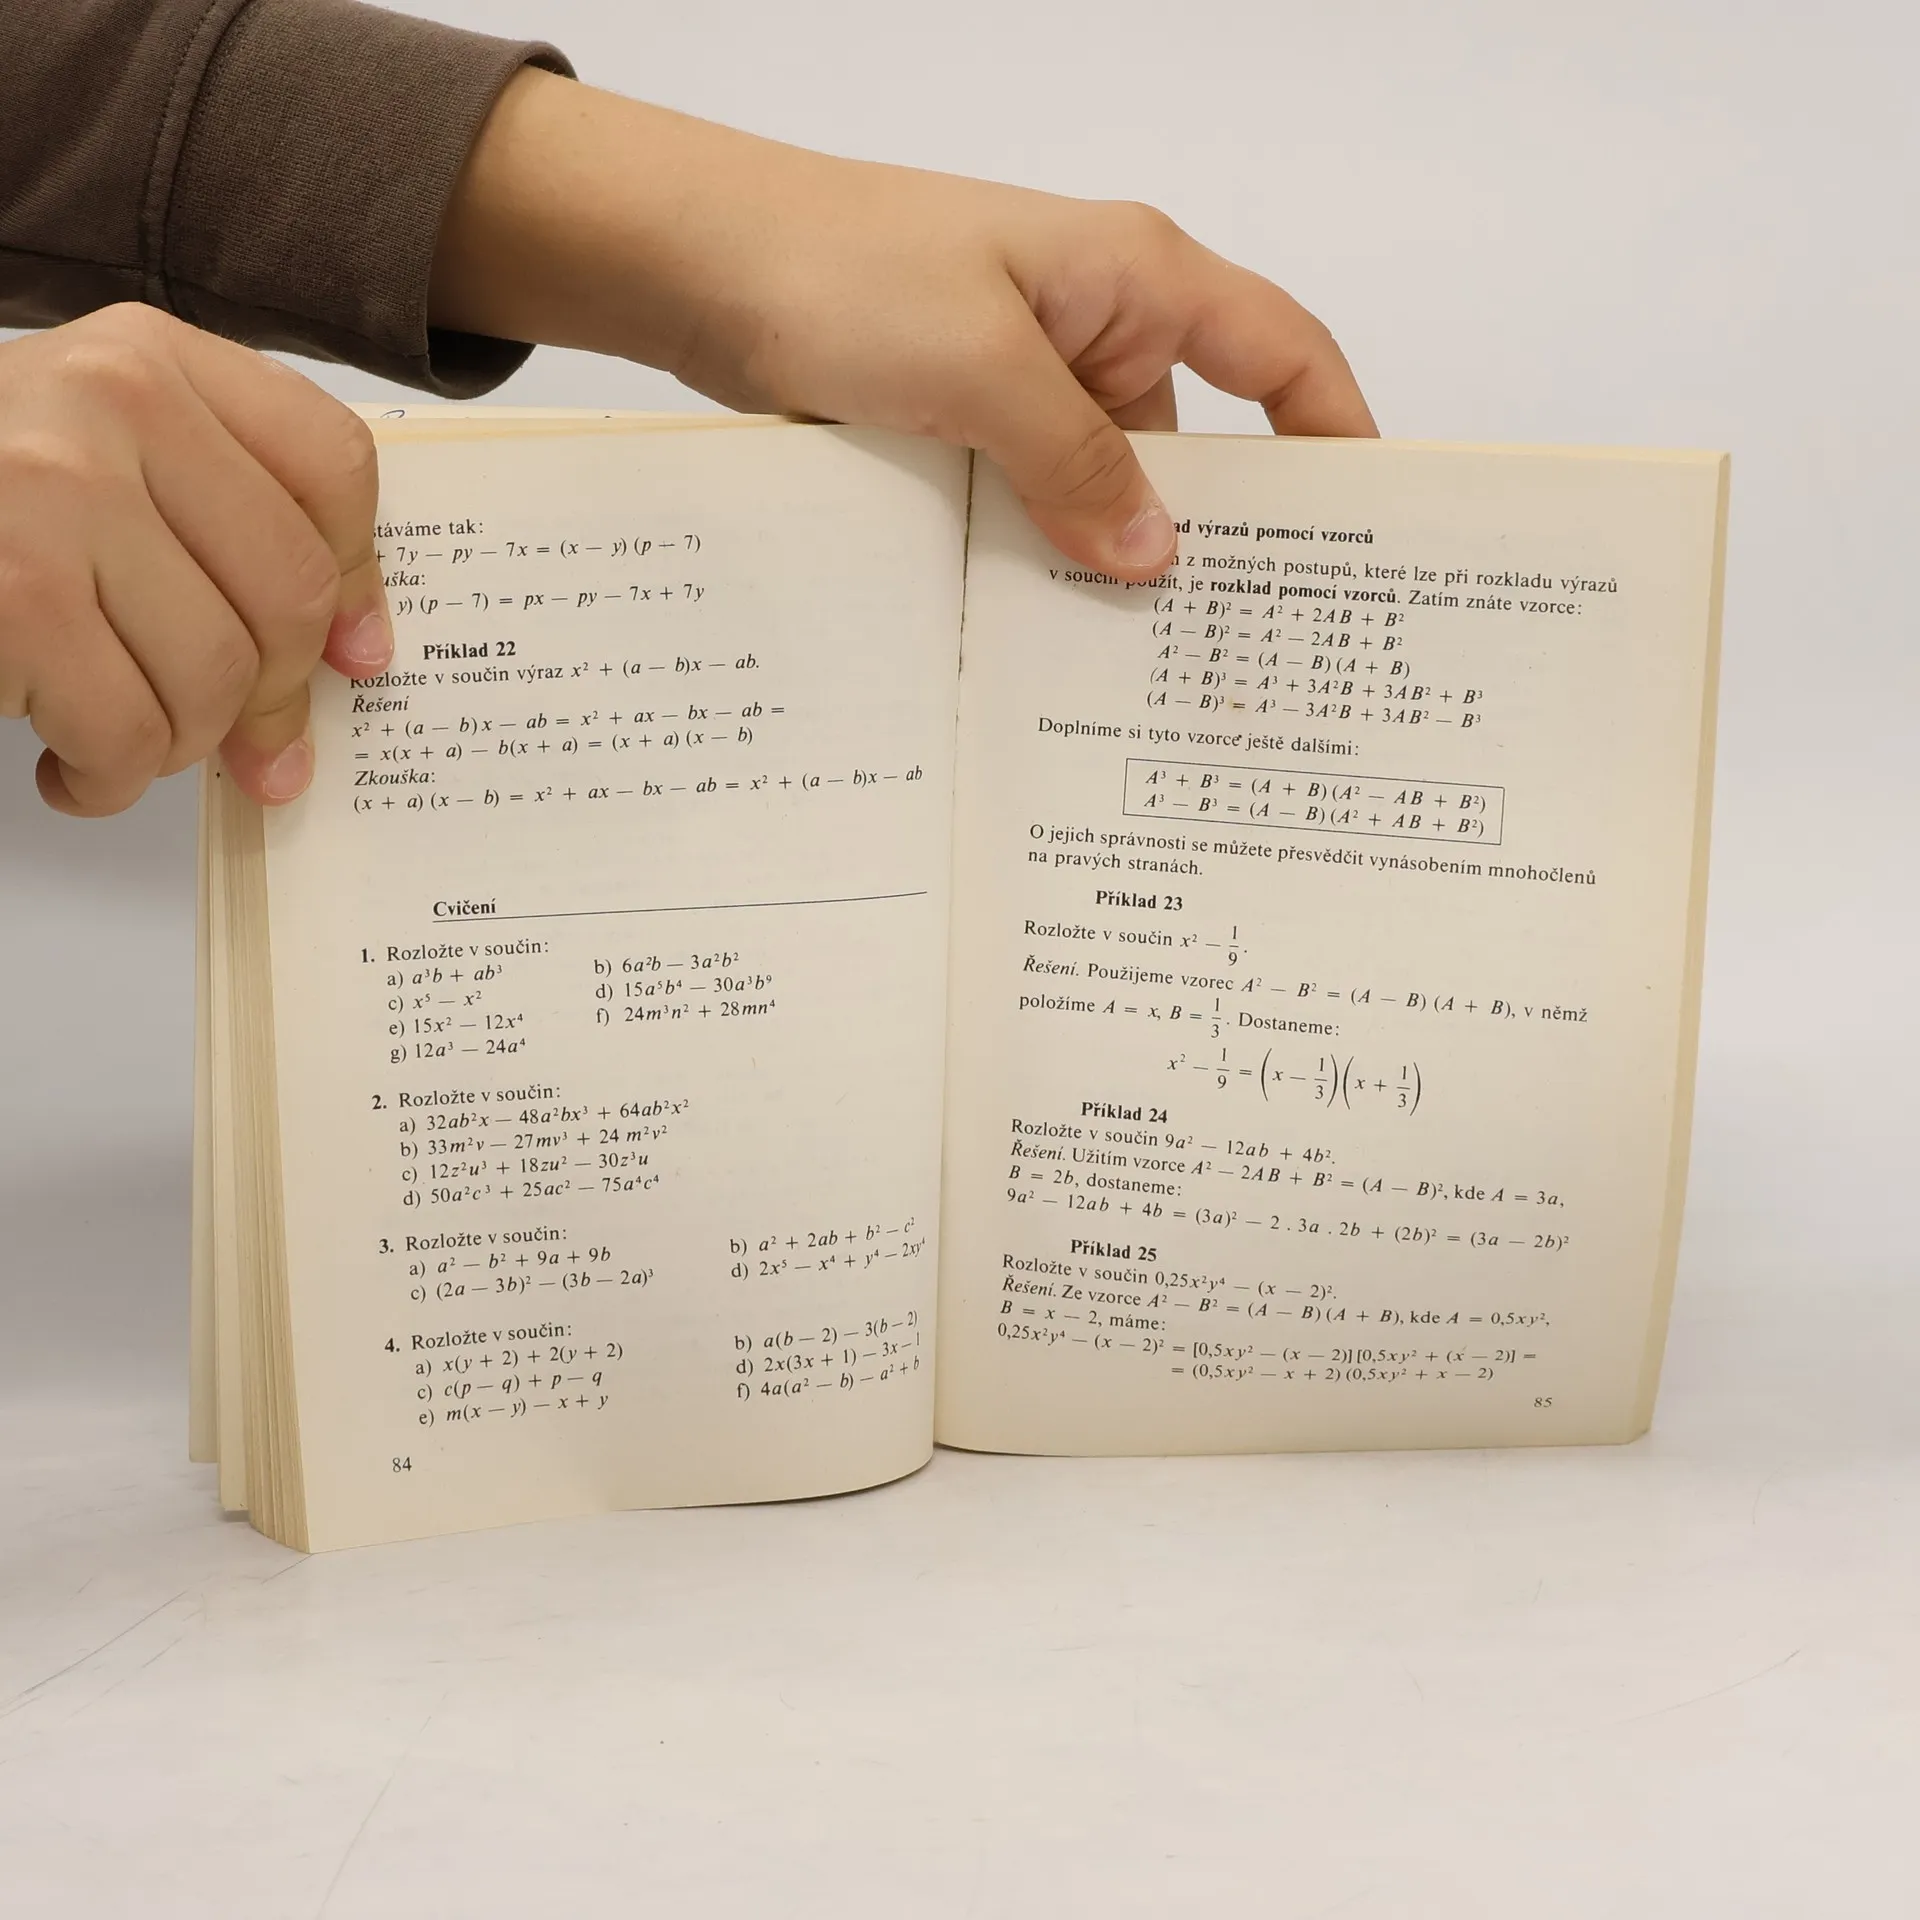 táváme tak:
+ 7y — py — 7x = (x — y) (p — 7)
uška:
y) (p — 7) = px — py — 7x + 7y
Příklad 22
Rozložte v součin výraz x² + (a — b)x — ab.
Řešení
x² + (a — b) x — ab = x² + ax — bx — ab =
= x(x + a) — b(x + a) = (x + a) (x — b)
Zkouška:
(x + a) (x — b) = x² + ax — bx — ab = x² + (a — b)x — ab
Cvičení
1. Rozložte v součin:
a) a³b + ab³ b) 6a²b — 3a²b²
c) x⁵ — x² d) 15a⁵b⁴ — 30a³b⁹
e) 15x² — 12x⁴ f) 24m³n² + 28mn⁴
g) 12a³ — 24a⁴
2. Rozložte v součin:
a) 32ab²x — 48a²bx³ + 64ab²x²
b) 33m²v — 27mv³ + 24 m²v²
c) 12z²u³ + 18zu² — 30z³u
d) 50a²c³ + 25ac² — 75a⁴c⁴
3. Rozložte v součin:
a) a² — b² + 9a + 9b b) a² + 2ab + b² — c²
c) (2a — 3b)² — (3b — 2a)³ d) 2x⁵ — x⁴ + y⁴ — 2xy⁴
4. Rozložte v součin:
a) x(y + 2) + 2(y + 2) b) a(b — 2) — 3(b — 2)
c) c(p — q) + p — q d) 2x(3x + 1) — 3x — 1
e) m(x — y) — x + y f) 4a(a² — b) — a² + b
84
ad výrazů pomocí vzorců
z možných postupů, které lze při rozkladu výrazů
v součin použít, je rozklad pomocí vzorců. Zatím znáte vzorce:
(A + B)² = A² + 2AB + B²
(A — B)² = A² — 2AB + B²
A² — B² = (A — B) (A + B)
(A + B)³ = A³ + 3A²B + 3AB² + B³
(A — B)³ = A³ — 3A²B + 3AB² — B³
Doplníme si tyto vzorce ještě dalšími:
A³ + B³ = (A + B) (A² — AB + B²)
A³ — B³ = (A — B) (A² + AB + B²)
O jejich správnosti se můžete přesvědčit vynásobením mnohočlenů
na pravých stranách.
Příklad 23
Rozložte v součin x² — 1/9.
Řešení. Použijeme vzorec A² — B² = (A — B) (A + B), v němž
položíme A = x, B = 1/3. Dostaneme:
x² — 1/9 = (x — 1/3)(x + 1/3)
Příklad 24
Rozložte v součin 9a² — 12ab + 4b².
Řešení. Užitím vzorce A² — 2AB + B² = (A — B)², kde A = 3a,
B = 2b, dostaneme:
9a² — 12ab + 4b = (3a)² — 2 . 3a . 2b + (2b)² = (3a — 2b)²
Příklad 25
Rozložte v součin 0,25x²y⁴ — (x — 2)².
Řešení. Ze vzorce A² — B² = (A — B) (A + B), kde A = 0,5xy²,
B = x — 2, máme:
0,25x²y⁴ — (x — 2)² = [0,5xy² — (x — 2)] [0,5xy² + (x — 2)] =
= (0,5xy² — x + 2) (0,5xy² + x — 2)
85